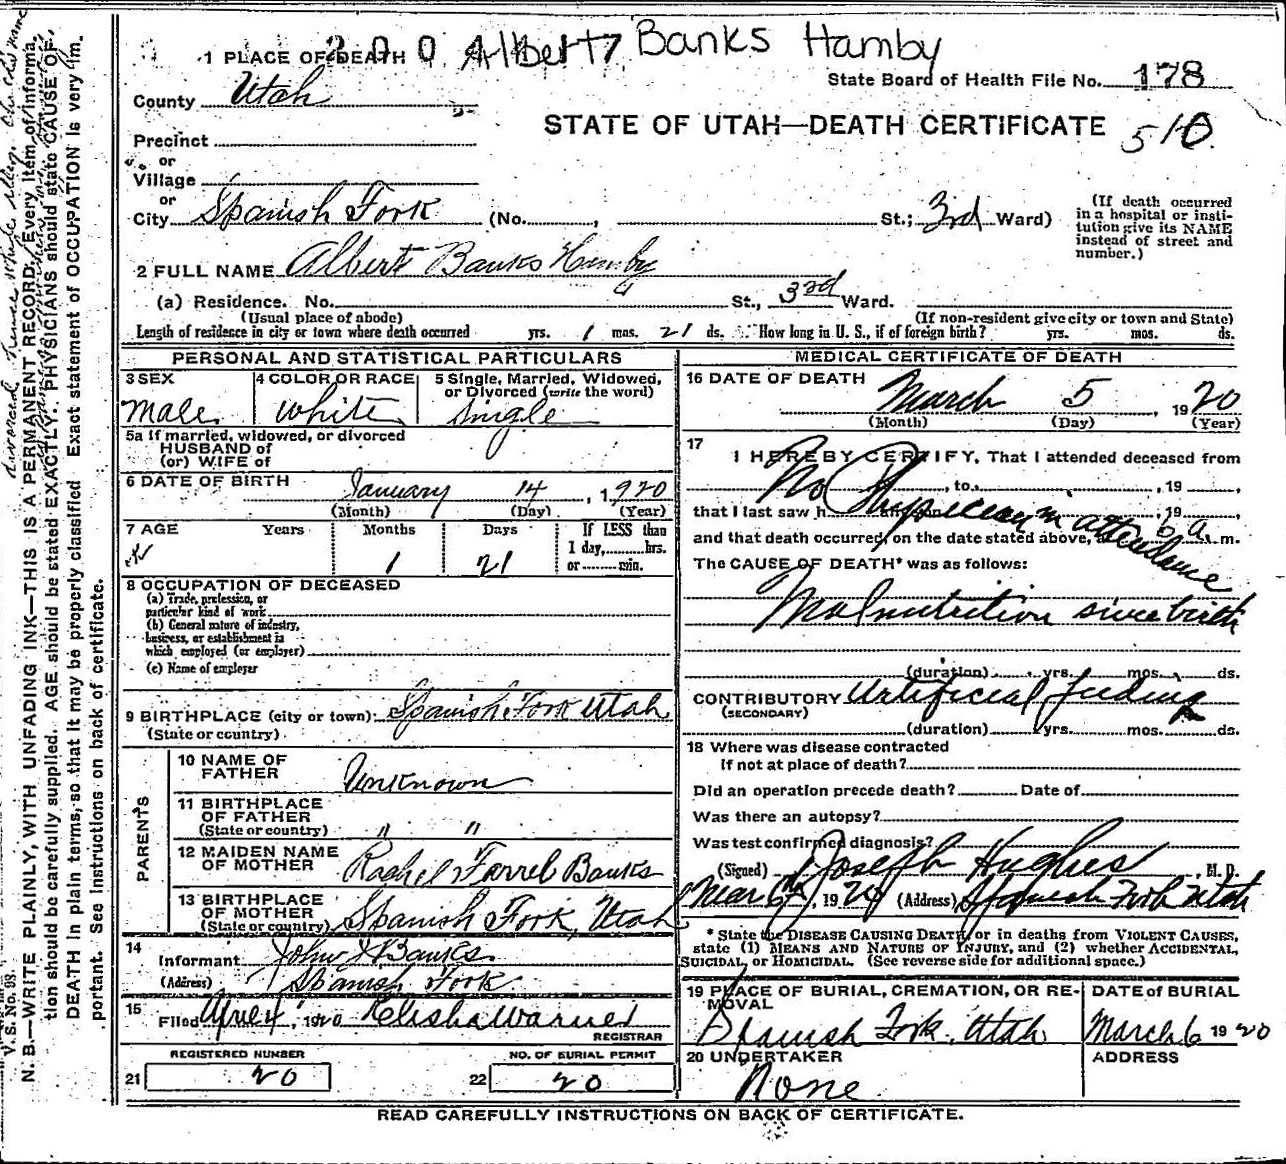 200 Albert Banks Hamby
1 PLACE OF DEATH
State Board of Health File No. 178
County Utah
STATE OF UTAH—DEATH CERTIFICATE 510
Precinct
or
Village
or
City Spanish Fork (No. , St.; 3rd Ward)
(If death occurred in a hospital or insti-
tution give its NAME instead of street and number.)
2 FULL NAME Albert Banks Hamby
(a) Residence. No. St., 3rd Ward.
(Usual place of abode) (If non-resident give city or town and State)
Length of residence in city or town where death occurred yrs. 1 mos. 21 ds. How long in U. S., if of foreign birth? yrs. mos. ds.
PERSONAL AND STATISTICAL PARTICULARS
3 SEX 4 COLOR OR RACE 5 Single, Married, Widowed,
or Divorced (write the word)
Male White Single
5a If married, widowed, or divorced
HUSBAND of
(or) WIFE of
6 DATE OF BIRTH January 14, 1920
(Month) (Day) (Year)
7 AGE Years Months Days If LESS than
1 day, hrs.
or min.
1 21
8 OCCUPATION OF DECEASED
(a) Trade, profession, or
particular kind of work
(b) General nature of industry,
business, or establishment in
which employed (or employer)
(c) Name of employer
9 BIRTHPLACE (city or town) Spanish Fork Utah
(State or country)
PARENTS
10 NAME OF
FATHER Unknown
11 BIRTHPLACE
OF FATHER
(State or country) " "
12 MAIDEN NAME
OF MOTHER Rachel Farrel Banks
13 BIRTHPLACE
OF MOTHER
(State or country) Spanish Fork, Utah
14
Informant John J Banks
(Address) Spanish Fork
15
Filed Apr 4, 1920 Elisha Warner
REGISTRAR
REGISTERED NUMBER NO. OF BURIAL PERMIT
21 20 22 20
MEDICAL CERTIFICATE OF DEATH
16 DATE OF DEATH March 5, 1920
(Month) (Day) (Year)
17
I HEREBY CERTIFY, That I attended deceased from
, to , 19 ,
No Physician in attendance
that I last saw h , 19 ,
and that death occurred, on the date stated above, 6 a. m.
The CAUSE OF DEATH* was as follows:
Malnutrition since birth
(duration) yrs. mos. ds.
CONTRIBUTORY Artificial feeding
(SECONDARY)
(duration) yrs. mos. ds.
18 Where was disease contracted
If not at place of death?
Did an operation precede death? Date of
Was there an autopsy?
Was test confirmed diagnosis?
(Signed) Joseph Hughes, M. D.
Mar 6th, 1920 (Address) Spanish Fork Utah
* State the DISEASE CAUSING DEATH, or in deaths from VIOLENT CAUSES,
state (1) MEANS AND NATURE OF INJURY, and (2) whether ACCIDENTAL,
SUICIDAL, or HOMICIDAL. (See reverse side for additional space.)
19 PLACE OF BURIAL, CREMATION, OR RE-
MOVAL
DATE of BURIAL
Spanish Fork, Utah March 6 1920
20 UNDERTAKER ADDRESS
None
READ CAREFULLY INSTRUCTIONS ON BACK OF CERTIFICATE.
V. S. No. 98.
N. B.—WRITE PLAINLY, WITH UNFADING INK—THIS IS A PERMANENT RECORD. Every item of informa-
tion should be carefully supplied. AGE should be stated EXACTLY. PHYSICIANS should state CAUSE OF
DEATH in plain terms, so that it may be properly classified. Exact statement of OCCUPATION is very im-
portant. See instructions on back of certificate.